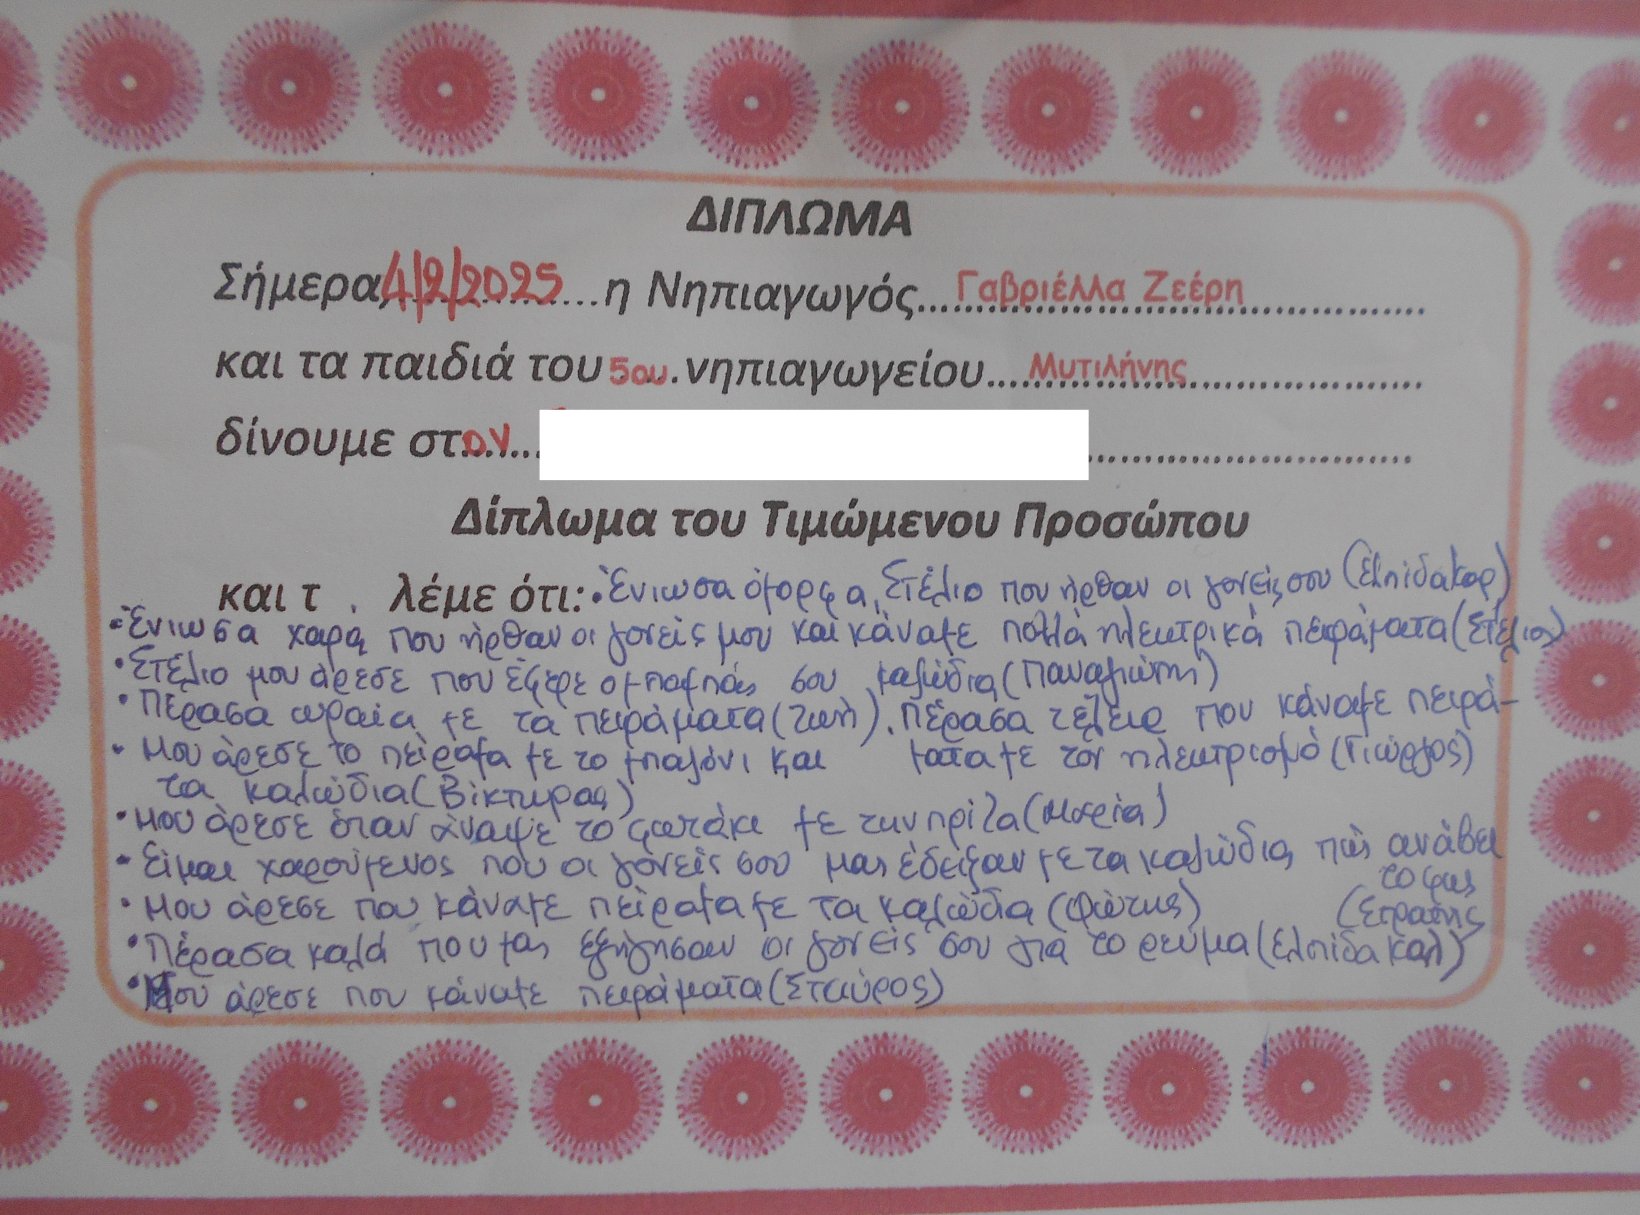 ΔΙΠΛΩΜΑ
Σήμερα, 4/2/2025 ...η Νηπιαγωγός... Γαβριέλλα Ζεέρη
και τα παιδιά του 5ου νηπιαγωγείου... Μυτιλήνης
δίνουμε στον...
Δίπλωμα του Τιμώμενου Προσώπου
και τ . λέμε ότι: • Ένιωσα όμορφα, Στέλιο που ήρθαν οι γονείς σου (Ελπίδα Κορ)
• Ένιωσα χαρά που ήρθαν οι γονείς μου και κάναμε πολλά ηλεκτρικά πειράματα (Στέλιος)
• Στέλιο μου άρεσε που έφερε ο μπαμπάς σου καλώδια (Παναγιώτης)
• Πέρασα ωραία με τα πειράματα (Ζωή). Πέρασα τέλεια που κάναμε πειρά-
• Μου άρεσε το πείραμα με το μπαλόνι και ματα με τον ηλεκτρισμό (Γιώργος)
τα καλώδια (Βίκτωρας)
• Μου άρεσε όταν άναψε το φωτάκι με την πρίζα (Μαρία)
• Είμαι χαρούμενος που οι γονείς σου μας έδειξαν με τα καλώδια πώς ανάβει
το φως
• Μου άρεσε που κάναμε πείραμα με τα καλώδια (Φώτης) (Στρατής
• Πέρασα καλά που μας εξήγησαν οι γονείς σου για το ρεύμα (Ελπίδα Καλ)
• Μου άρεσε που κάναμε πειράματα (Σταύρος)